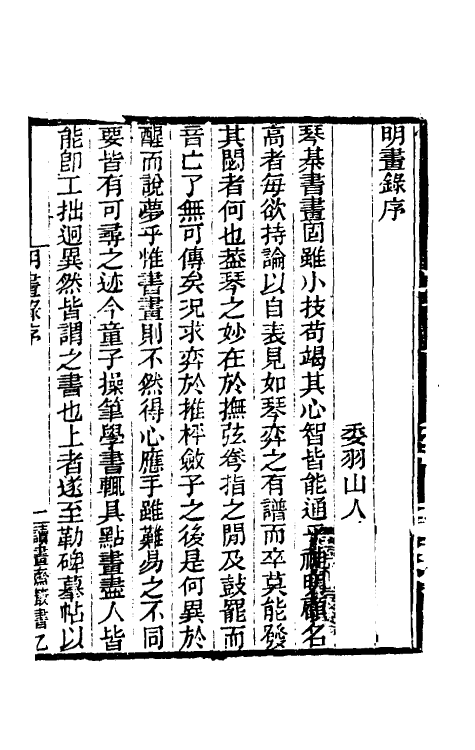 明畫錄序
委羽山人
琴棊書畫固雖小技苟竭其心智皆能通乎神明顧名
高者每欲持論以自表見如琴弈之有譜而卒莫能發
其閟者何也葢琴之妙在於撫弦弮指之閒及鼓罷而
音亡了無可傳矣況求弈於推枰斂子之後是何異於
醒而說夢乎惟書畫則不然得心應手雖難易之不同
要皆有可尋之迹今童子操筆學書輒具點畫盡人皆
能卽工拙迥異然皆謂之書也上者遂至勒碑摹帖以
明畫錄序
一讀畫齋叢書 己